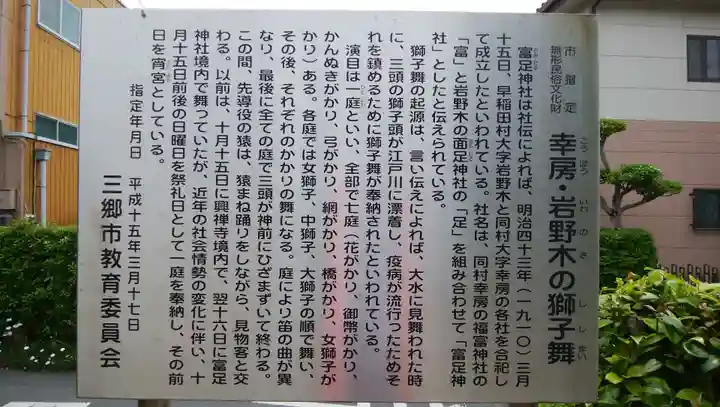 市指定
無形民俗文化財
幸房・岩野木の獅子舞
こうぼう いわのき ししまい
富足神社は社伝によれば、明治四十三年（一九一〇）三月
十五日、早稲田村大字岩野木と同村大字幸房の各社を合祀し
て成立したといわれている。社名は、同村幸房の福富神社の
「富」と岩野木の面足神社の「足」を組み合わせて「富足神
社」としたと伝えられている。
獅子舞の起源は、言い伝えによれば、大水に見舞われた時
に、三頭の獅子頭が江戸川に漂着し、疫病が流行ったためそ
れを鎮めるために獅子舞が奉納されたといわれている。
演目は一庭といい、全部で七庭（花がかり、御幣がかり、
かんぬきがかり、弓がかり、網がかり、橋がかり、女獅子が
かり）ある。各庭では女獅子、中獅子、大獅子の順で舞い、
その後、それぞれのかかりの舞になる。庭により笛の曲が異
なり、最後に全ての庭で三頭が神前にひざまずいて終わる。
この間、先導役の猿は、猿まね踊りをしながら、見物客と交
わる。以前は、十月十五日に興禅寺境内で、翌十六日に富足
神社境内で舞っていたが、近年の社会情勢の変化に伴い、十
月十五日前後の日曜日を祭礼日として一庭を奉納し、その前
日を宵宮としている。
指定年月日 平成十五年三月十七日
三郷市教育委員会